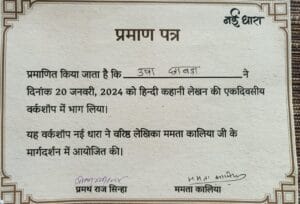 नई धारा
प्रमाण पत्र
प्रमाणित किया जाता है कि उषा छाबड़ा ने
दिनांक 20 जनवरी, 2024 को हिन्दी कहानी लेखन की एकदिवसीय
वर्कशॉप में भाग लिया।
यह वर्कशॉप नई धारा ने वरिष्ठ लेखिका ममता कालिया जी के
मार्गदर्शन में आयोजित की।
प्रमथ राज सिन्हा ममता कालिया